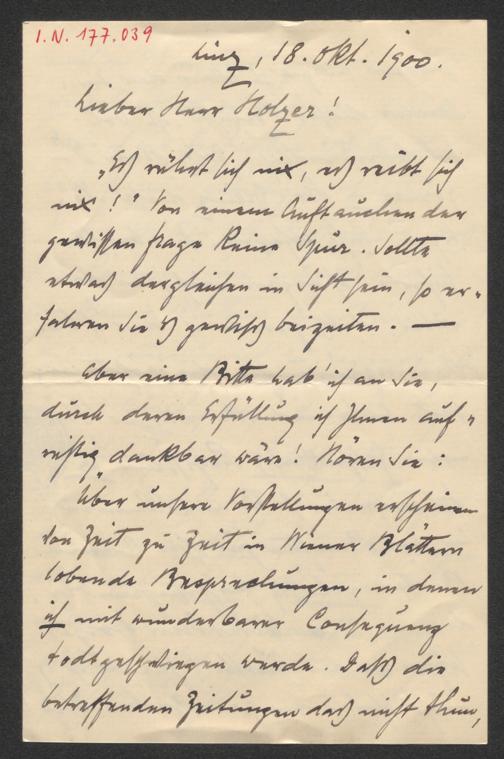 I.N. 177.039
Linz, 18. Okt. 1900.
Lieber Herr Holzer!
„Es rührt sich nix, es reibt sich
nix!" Von einem Auftauchen der
gewissen Frage keine Spur. Sollte
etwas dergleichen in Sicht sein, so er-
fahren Sie es gewiss beizeiten. —
Aber eine Bitte hab' ich an Sie,
durch deren Erfüllung ich Ihnen auf-
richtig dankbar wäre! Hören Sie:
Über unsere Vorstellungen erscheinen
von Zeit zu Zeit in Wiener Blättern
lobende Besprechungen, in denen
ich mit wunderbarer Consequenz
todtgeschwiegen werde. Dass die
betreffenden Zeitungen das nicht thun,